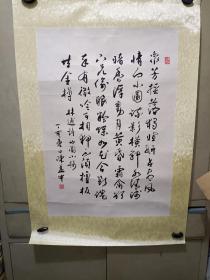 众芳摇落独暄妍占尽风
情向小园疏影横斜水清浅
暗香浮动月黄昏霜禽欲
下先偷眼粉蝶如知合断魂
幸有微吟可相狎不须檀板
共金樽 林逋诗山园小梅
丁亥夏日陈